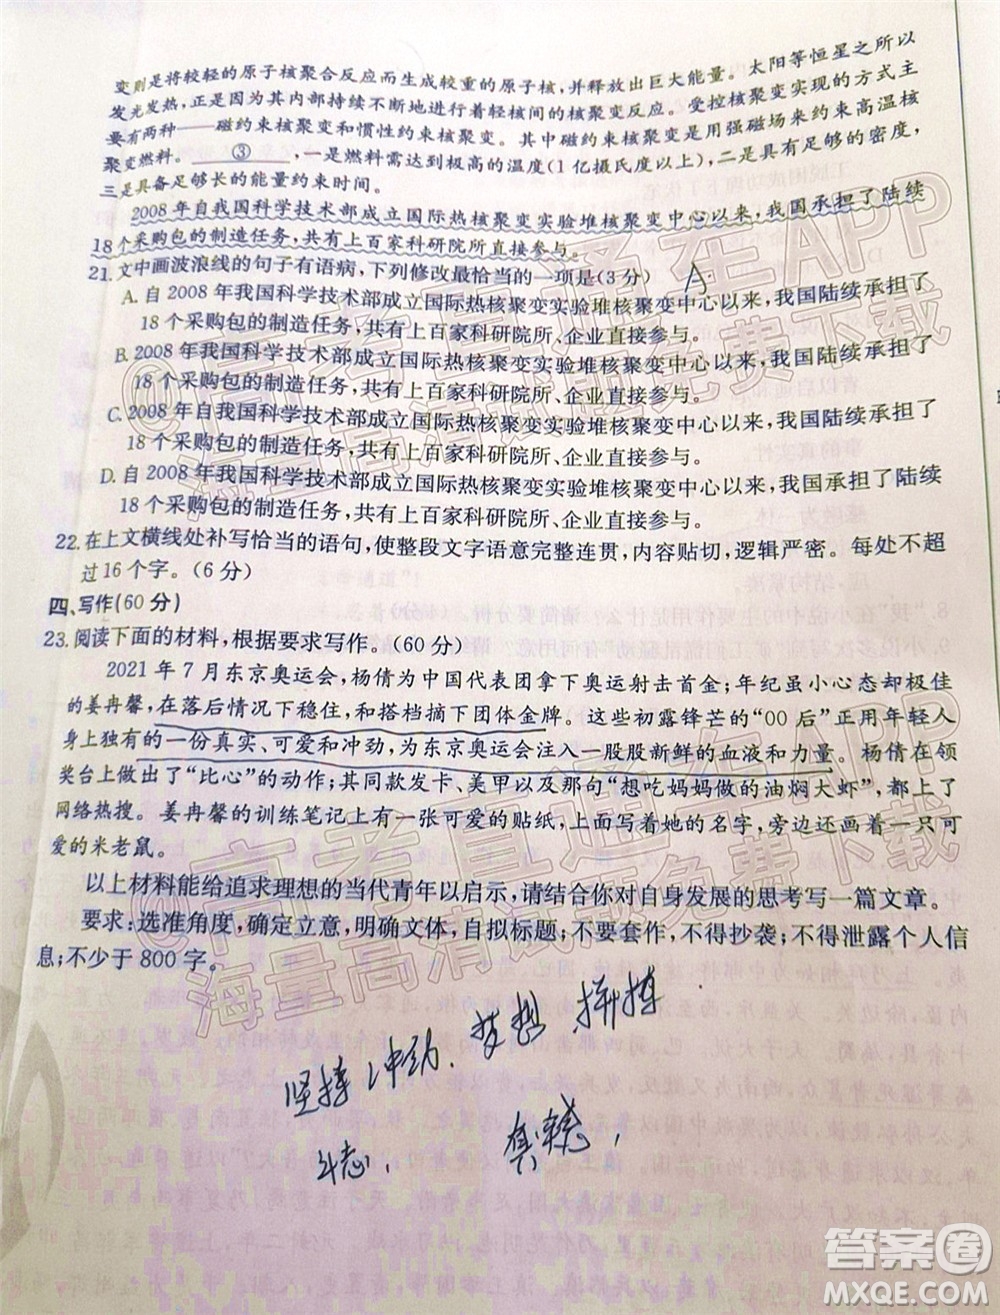 变则是将较轻的原子核聚合反应而生成较重的原子核，并释放出巨大能量。太阳等恒星之所以
发光发热，正是因为其内部持续不断地进行着轻核间的核聚变反应。受控核聚变实现的方式主
要有两种——磁约束核聚变和惯性约束核聚变。其中磁约束核聚变是用强磁场来约束高温核
聚变燃料。 ③ ，一是燃料需达到极高的温度(1亿摄氏度以上)，二是具备足够的密度，
三是具备足够长的能量约束时间。
2008年自我国科学技术部成立国际热核聚变实验堆核聚变中心以来，我国承担了陆续
18个采购包的制造任务，共有上百家科研院所直接参与。
21.文中画波浪线的句子有语病，下列修改最恰当的一项是(3分) A.
A.自2008年我国科学技术部成立国际热核聚变实验堆核聚变中心以来，我国陆续承担了
18个采购包的制造任务，共有上百家科研院所、企业直接参与。
B.2008年我国科学技术部成立国际热核聚变实验堆核聚变中心以来，我国陆续承担了
18个采购包的制造任务，共有上百家科研院所直接参与。
C.2008年自我国科学技术部成立国际热核聚变实验堆核聚变中心以来，我国陆续承担了
18个采购包的制造任务，共有上百家科研院所、企业直接参与。
D.自2008年我国科学技术部成立国际热核聚变实验堆核聚变中心以来，我国承担了陆续
18个采购包的制造任务，共有上百家科研院所、企业直接参与。
22.在上文横线处补写恰当的语句，使整段文字语意完整连贯，内容贴切，逻辑严密。每处不超
过16个字。(6分)
四、写作(60分)
23.阅读下面的材料，根据要求写作。(60分)
2021年7月东京奥运会，杨倩为中国代表团拿下奥运射击首金；年纪虽小心态却极佳
的姜冉馨，在落后情况下稳住，和搭档摘下团体金牌。这些初露锋芒的“00后”正用年轻人
身上独有的一份真实、可爱和冲劲，为东京奥运会注入一股股新鲜的血液和力量。杨倩在领
奖台上做出了“比心”的动作；其同款发卡、美甲以及那句“想吃妈妈做的油焖大虾”，都上了
网络热搜。姜冉馨的训练笔记上有一张可爱的贴纸，上面写着她的名字，旁边还画着一只可
爱的米老鼠。
以上材料能给追求理想的当代青年以启示，请结合你对自身发展的思考写一篇文章。
要求：选准角度，确定立意，明确文体，自拟标题；不要套作，不得抄袭；不得泄露个人信
息；不少于800字。
坚持 冲劲. 梦想 拼搏
斗志.
@高考直通车APP
海量高清试题免费下载
@高考直通车APP
海量高清试题免费下载
答案圈
MXQE.COM